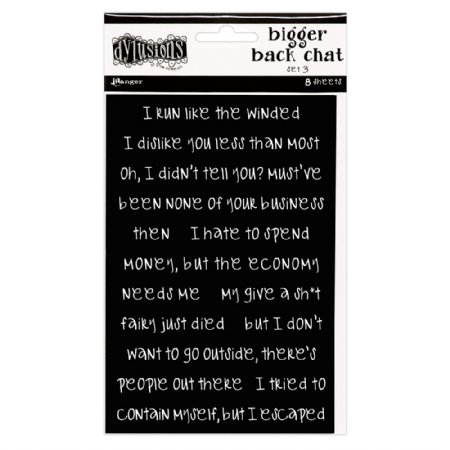 dylusions
bigger
back chat
set 3
Ranger
8 sheets
I run like the winded
I dislike you less than most
Oh, I didn't tell you? Must've
been none of your business
then I hate to spend
money, but the economy
needs me my give a sh*t
fairy just died but I don't
want to go outside, there's
people out there I tried to
contain myself, but I escaped